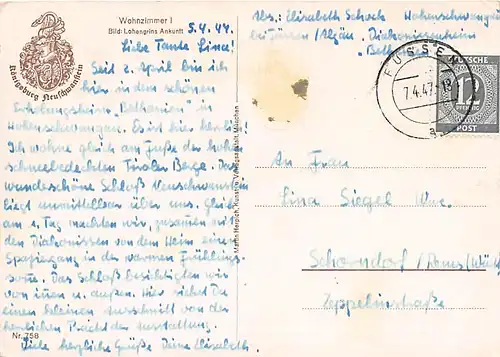 Wohnzimmer I
Bild: Lohengrins Ankunft
Königsburg Neuschwanstein
5.4.47.
Liebe Tante Lina!
Seit 2. April bin ich
hier in dem schönen
Erholungsheim „Bethanien" in
Hohenschwangau. Es ist hier herrlich!
Ich wohne gleich am Fuße der hohen
schneebedeckten Tiroler Berge. Das
wunderschöne Schloß Neuschwanstein
liegt unmittelbar über uns. Gleich
am 1. Tag machten wir, zusammen mit
den Diakonissen von dem Heim einen
Spaziergang in der warmen Frühlings-
sonne. Das Schloß besichtigten wir
von innen u. außen. Hier siehst Du
einen kleinen Ausschnitt von der
herrlichen Pracht der Ausstattung.
Viele herzliche Grüße Deine Elisabeth.
Nr. 758
Martin Herpich, Kunstin. Verlagsanstalt, München
Abs.: Elisabeth Schock Hohenschwangau
bei Füssen/Allgäu, Diakonissenheim
FÜSSEN
7.4.47.-18
a
DEUTSCHE
12
PFENNIG
POST
An Frau
Lina Siegel Wwe.
Schorndorf/Rems/Württ
Zeppelinstraße